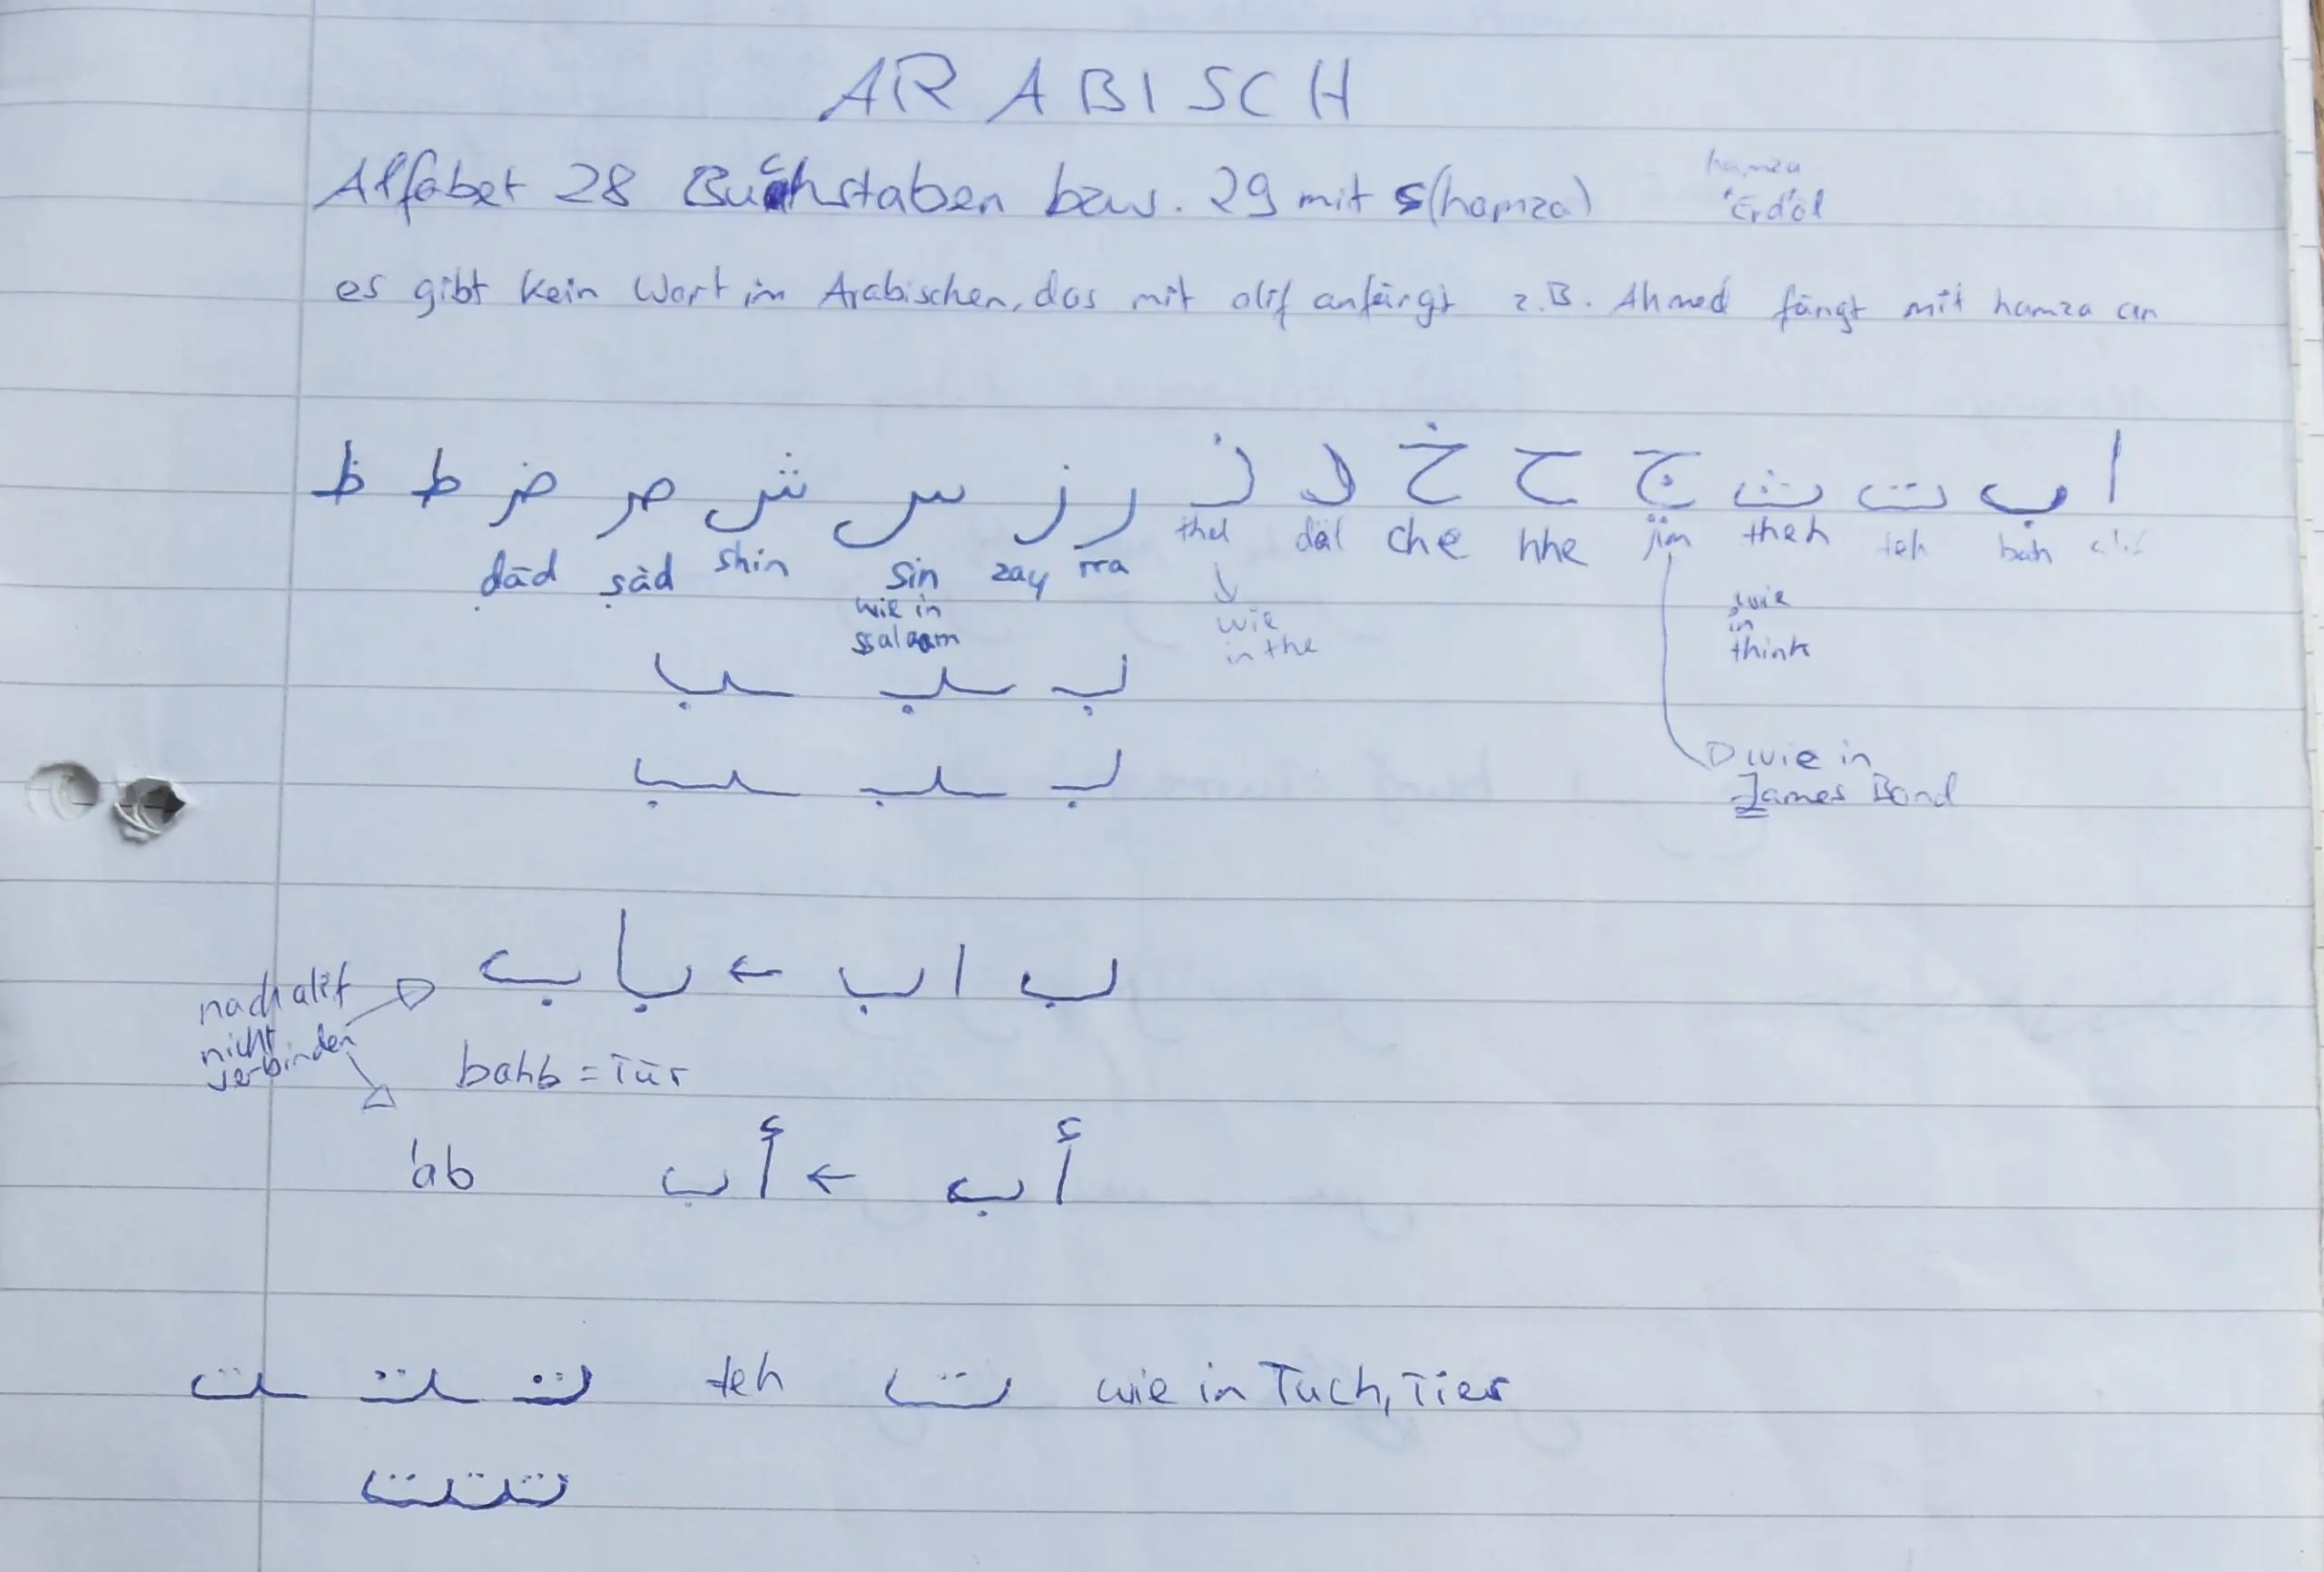 ARABISCH
Alfabet 28 Buchstaben bzw. 29 mit ء(hamza)
hamza
'Erd'öl
es gibt kein Wort im Arabischen, das mit alif anfängt z.B. Ahmed fängt mit hamza an
ا ب ت ث ج ح خ د ذ ر ز س ش ص ض ط ظ
dād ṣād shin sin zay rra thel dāl che hhe jim theh teh bah alif
wie in ssalaam
wie in the
wie in think
بـ ـبـ ـب
بـ ـبـ ـب
wie in James Bond
ب ا ب ← باب
nach alif nicht verbinden
bahb = Tür
'ab أ ب ← أب
تـ ـتـ ـت teh ت wie in Tuch, Tier
تتت